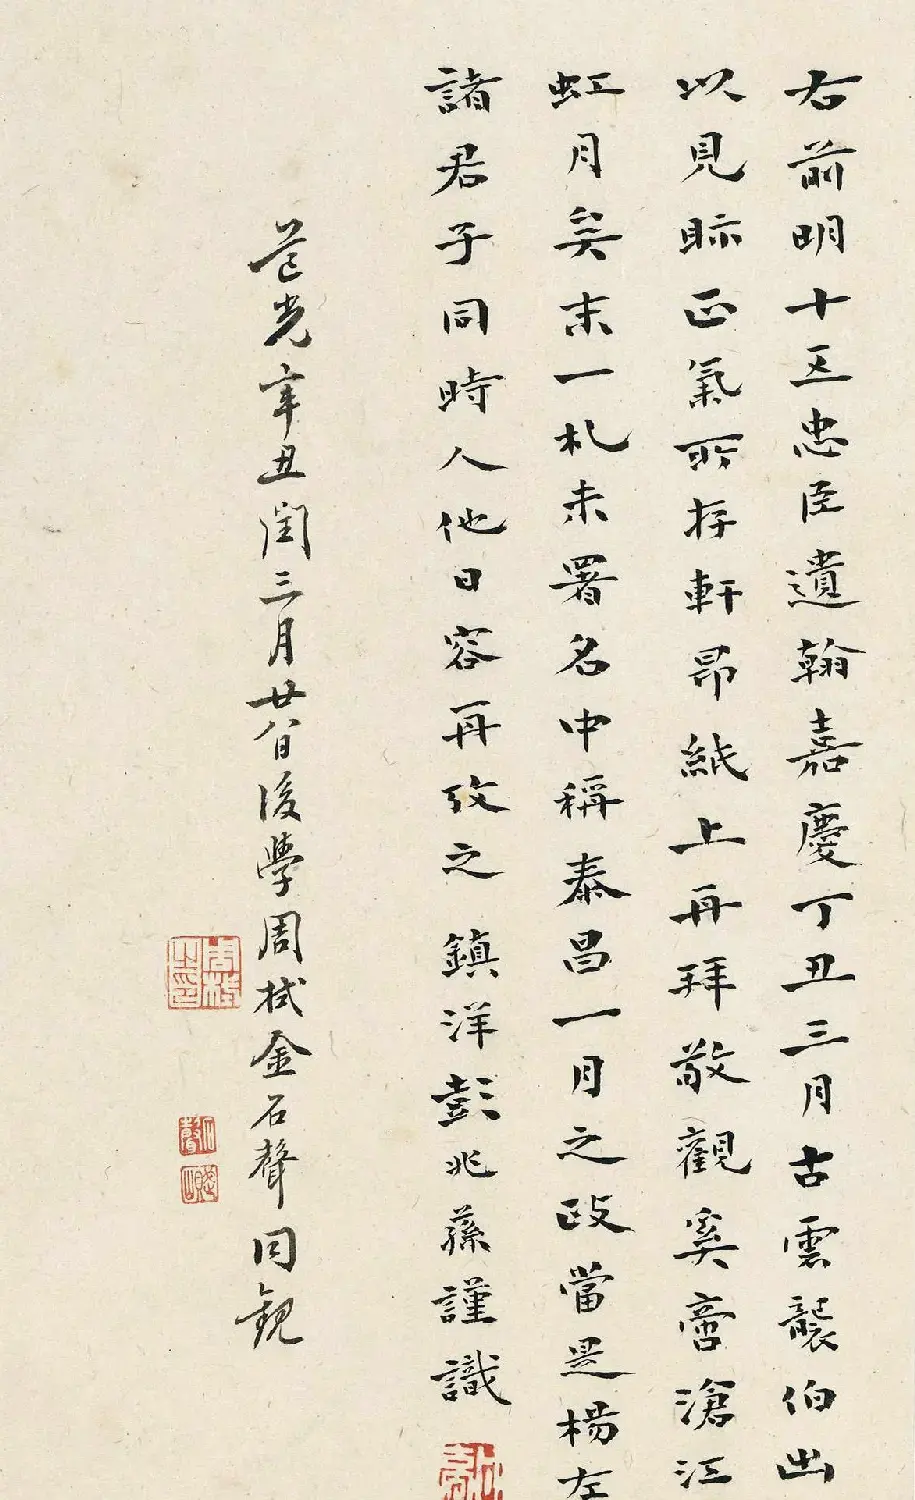 右前明十五忠臣遺翰嘉慶丁丑三月古雲襲伯出
以見眎正氣所存軒昂紙上再拜敬觀奚啻滄江
虹月矣末一札未署名中稱泰昌一月之政當是楊左
諸君子同時人他日容再攷之 鎮洋彭兆蓀謹識
道光辛丑閏三月廿八日後學周栻金石聲同觀
周栻之印